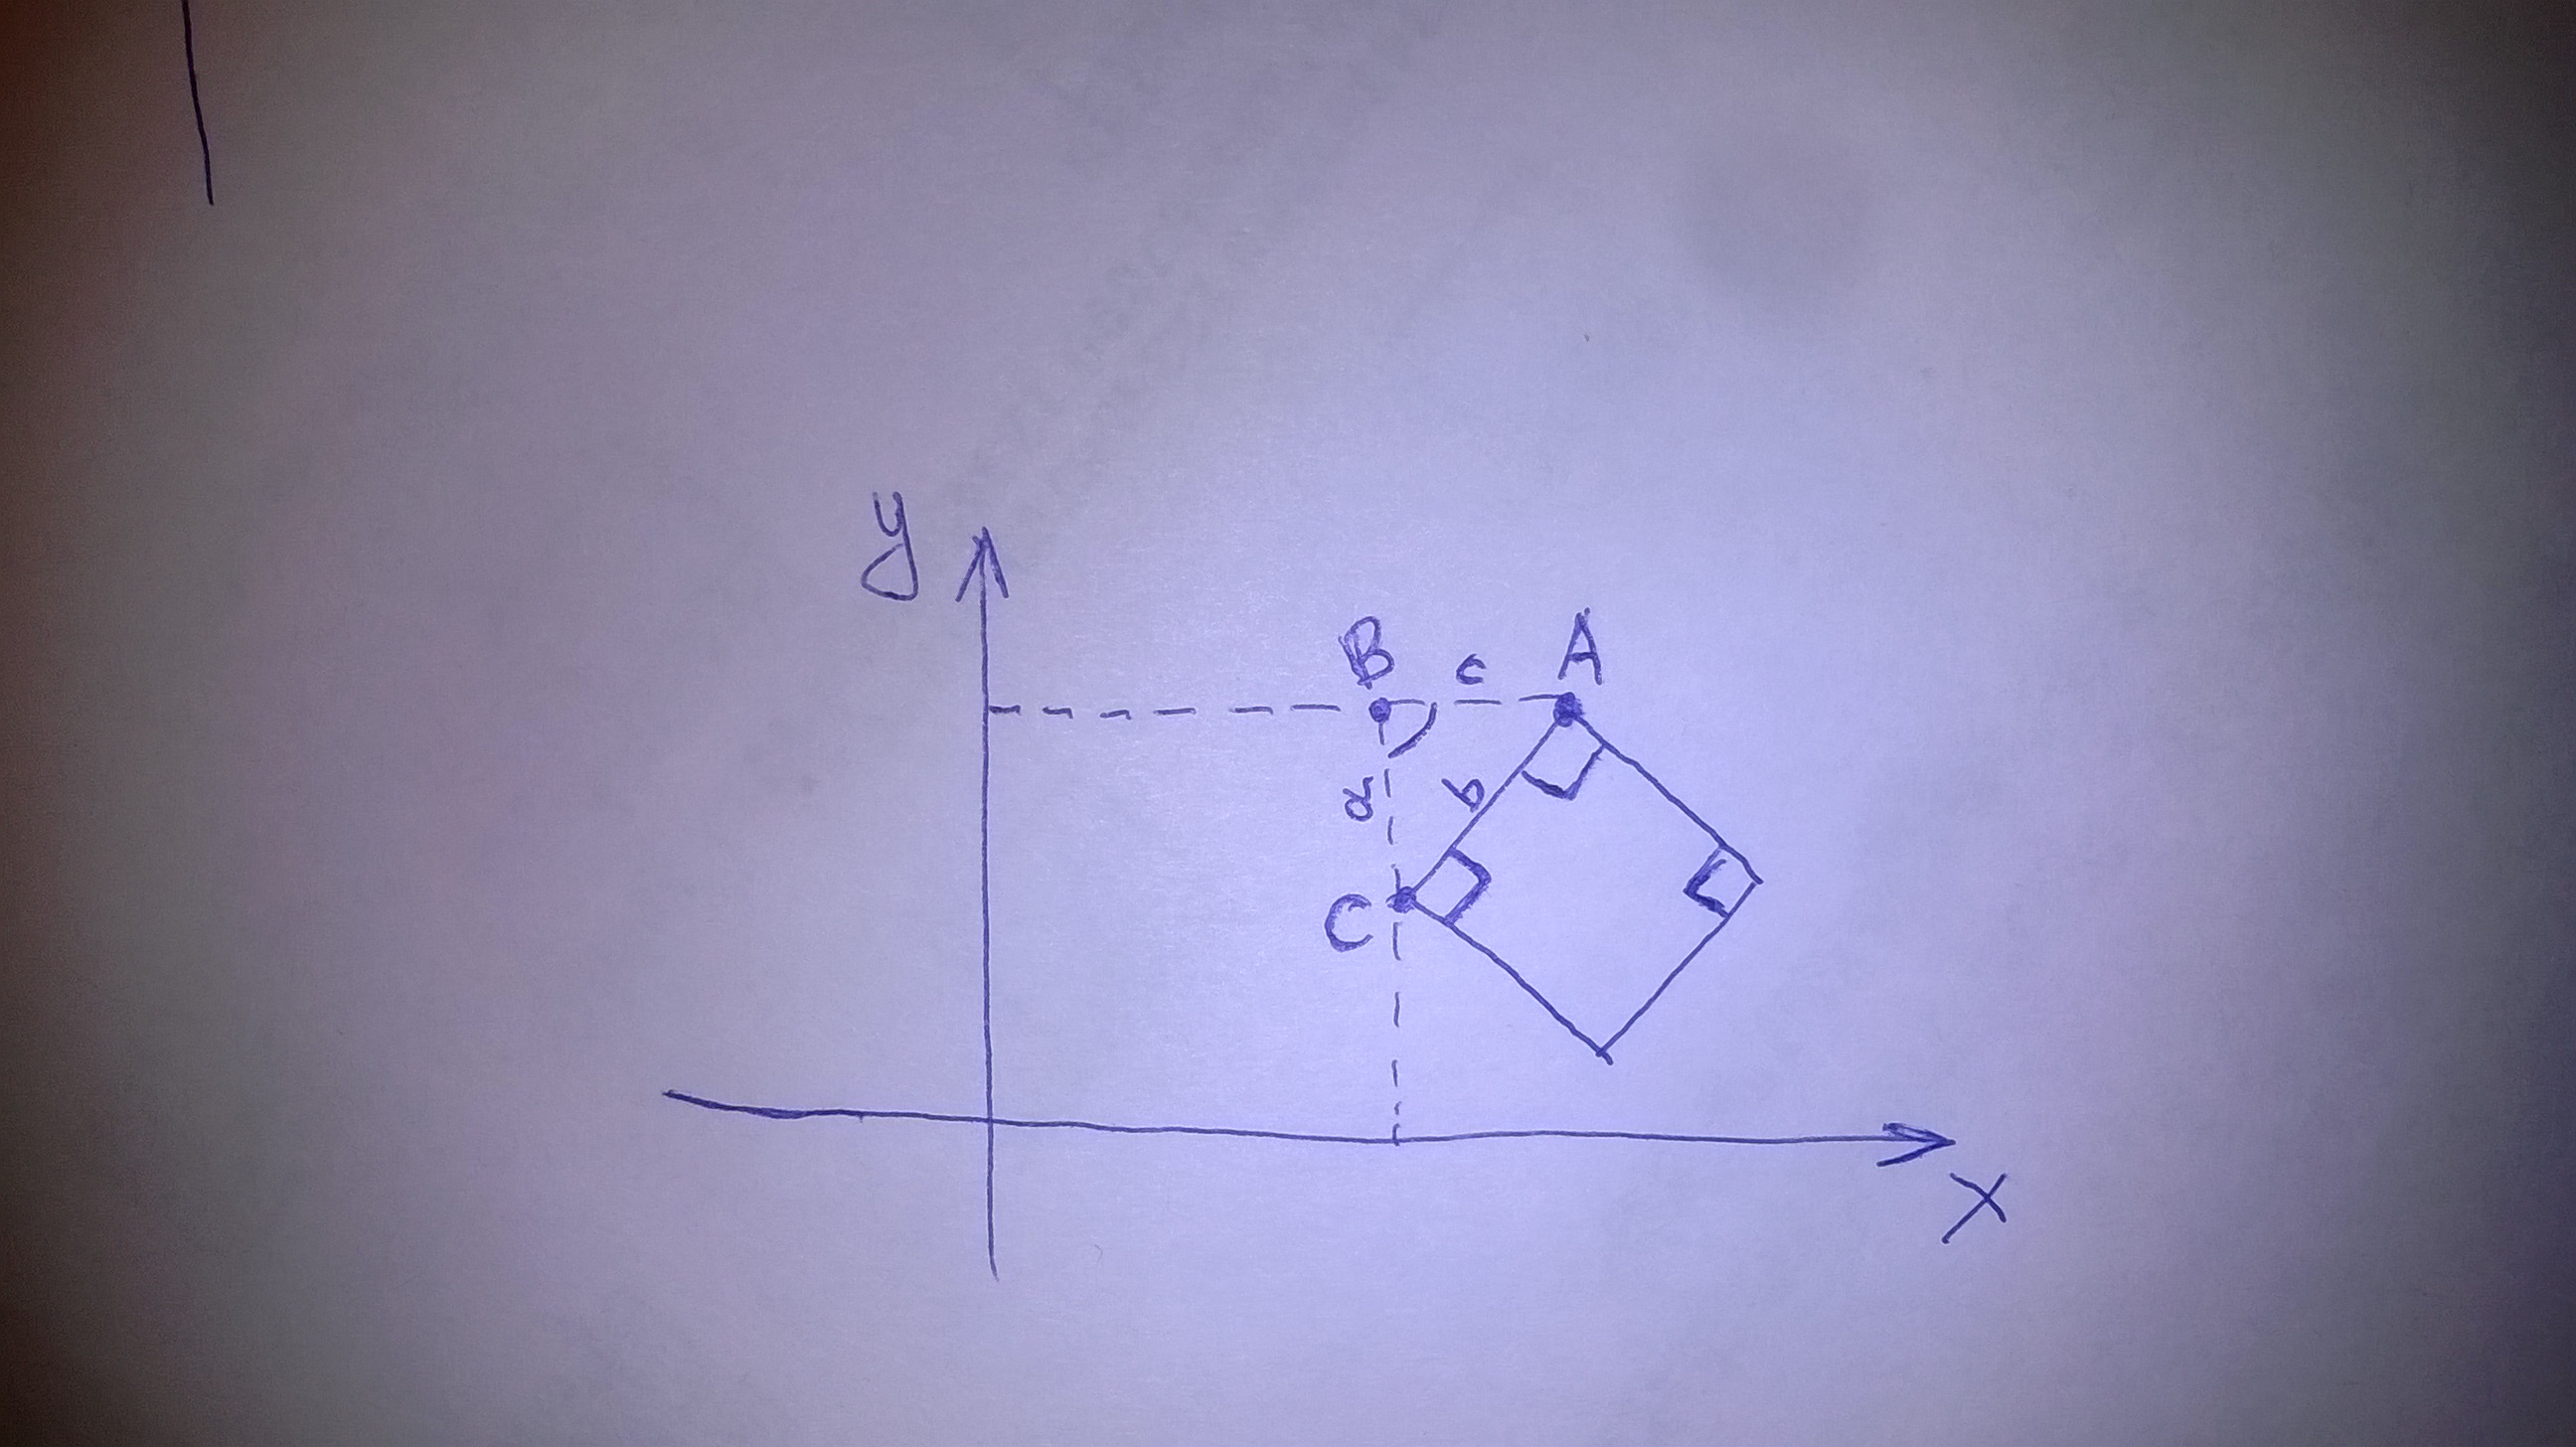 y
B c A
a b
C
x